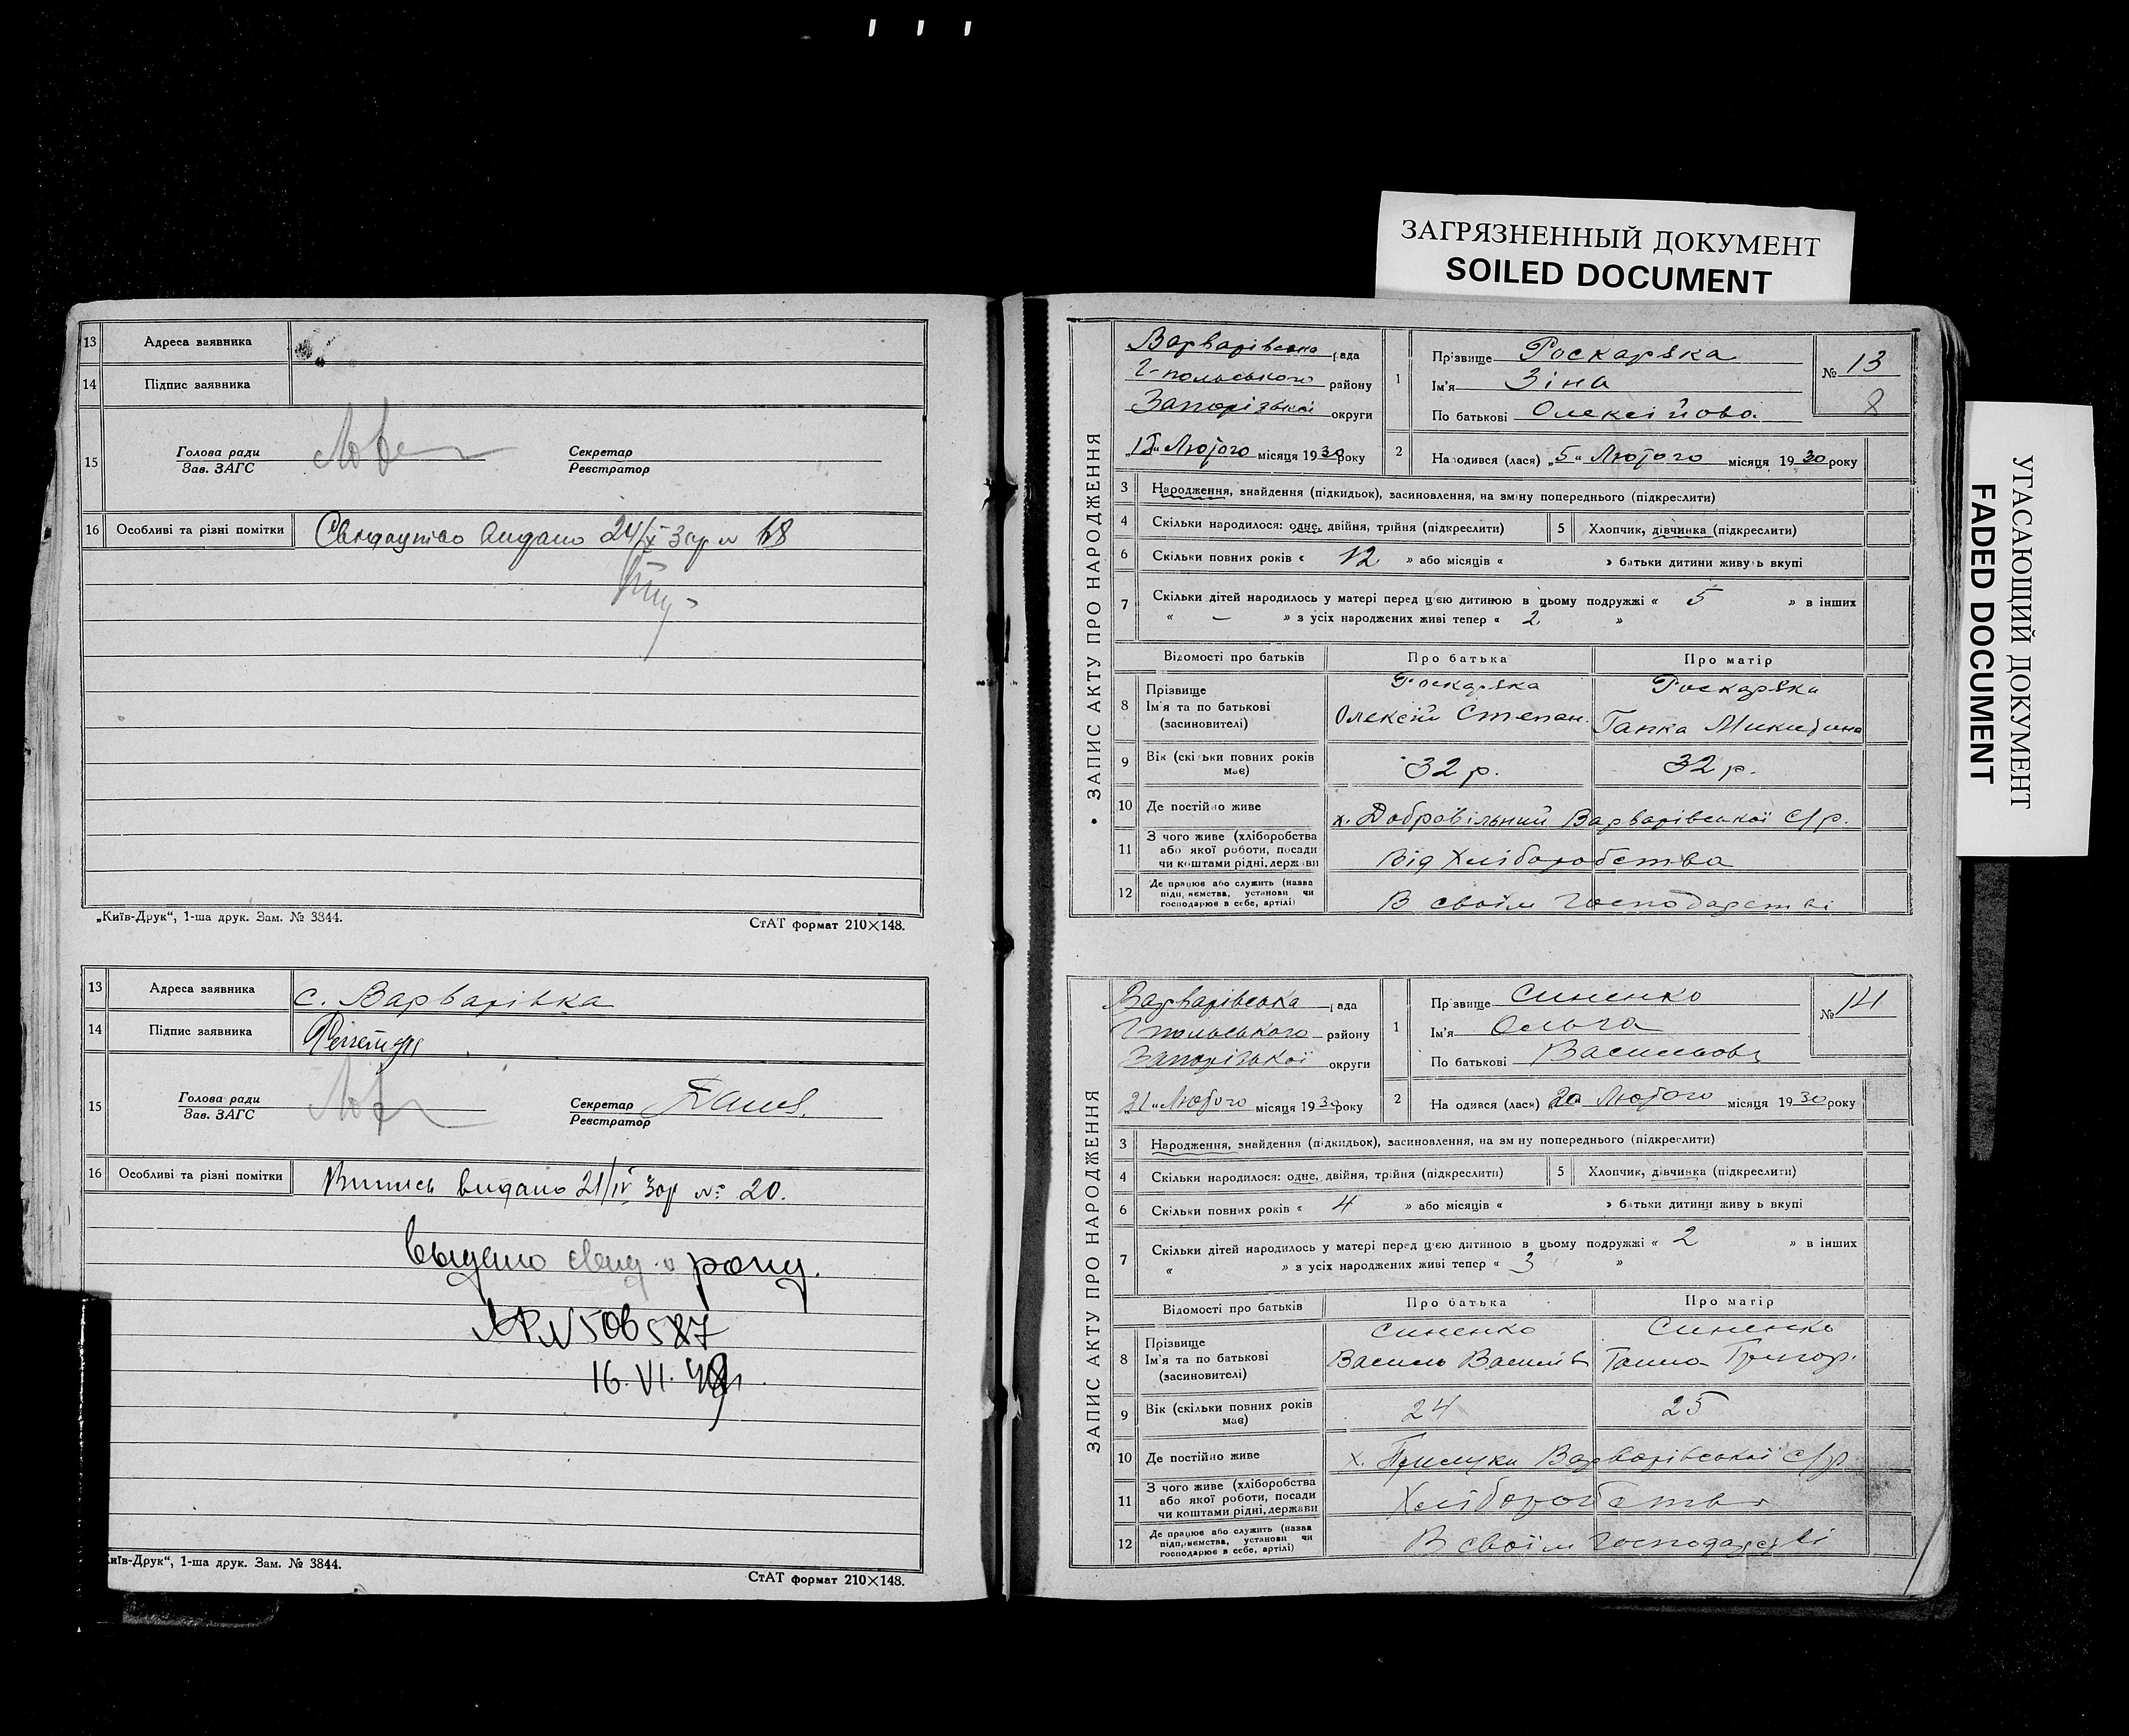 ЗАГРЯЗНЕННЫЙ ДОКУМЕНТ
SOILED DOCUMENT
УГАСАЮЩИЙ ДОКУМЕНТ
FADED DOCUMENT
13 Адреса заявника
14 Підпис заявника
15 Голова ради
Зав. ЗАГС
Секретар
Реєстратор
16 Особливі та різні помітки видано 24/X 30р № 68
„Київ-Друк“, 1-ша друк. Зам. № 3844.
СтАТ формат 210×148.
13 Адреса заявника с. Варварівка
14 Підпис заявника
15 Голова ради
Зав. ЗАГС
Секретар
Реєстратор
16 Особливі та різні помітки Випись видано 21/IV 30р № 20.
выдано свид. о рожд.
№ 506587
16. VI.
иїв-Друк“, 1-ша друк. Зам. № 3844.
СтАТ формат 210×148.
ЗАПИС АКТУ ПРО НАРОДЖЕННЯ
Варварівська рада
Г-польського району
Запорізької округи
Лютого місяця 1930 року
1 Прізвище
Ім'я Зіна
По батькові Олексійова
№ 13
8
2 Народився (лася) „5“ Лютого місяця 1930 року
3 Народження, знайдення (підкидьок), засиновлення, на зміну попереднього (підкреслити)
4 Скільки народилося: одне, двійня, трійня (підкреслити) 5 Хлопчик, дівчинка (підкреслити)
6 Скільки повних років « 12 » або місяців « » батьки дитини живуть вкупі
7 Скільки дітей народилось у матері перед цією дитиною в цьому подружжі « 5 » в інших
« – » з усіх народжених живі тепер « 2 »
Відомості про батьків Про батька Про матір
8 Прізвище
Ім'я та по батькові Олексій Степан. Ганка Микитина
(засиновителі)
9 Вік (скільки повних років має) 32 р. 32 р.
10 Де постійно живе х. Добровільний Варварівської С/р.
11 З чого живе (хліборобства
або якої роботи, посади
чи коштами рідні, держави від Хліборобства
12 Де працює або служить (назва
підприємства, установи чи
господарює в себе, артілі) В своїм господарстві
ЗАПИС АКТУ ПРО НАРОДЖЕННЯ
Варварівська рада
Г-польського району
Запорізької округи
21 „Лютого місяця 1930 року
1 Прізвище Синенко
Ім'я Ольга
По батькові Васильова
№ 14
2 Народився (лася) „20“ Лютого місяця 1930 року
3 Народження, знайдення (підкидьок), засиновлення, на зміну попереднього (підкреслити)
4 Скільки народилося: одне, двійня, трійня (підкреслити) 5 Хлопчик, дівчинка (підкреслити)
6 Скільки повних років « 4 » або місяців « » батьки дитини живуть вкупі
7 Скільки дітей народилось у матері перед цією дитиною в цьому подружжі « 2 » в інших
« » з усіх народжених живі тепер « 3 »
Відомості про батьків Про батька Про матір
8 Прізвище Синенко Синенко
Ім'я та по батькові Василь Ганна Григор.
(засиновителі)
9 Вік (скільки повних років має) 24 25
10 Де постійно живе х. Прилуки Варварівської с/р
11 З чого живе (хліборобства
або якої роботи, посади
чи коштами рідні, держави Хліборобства
12 Де працює або служить (назва
підприємства, установи чи
господарює в себе, артілі) В своїм господарстві